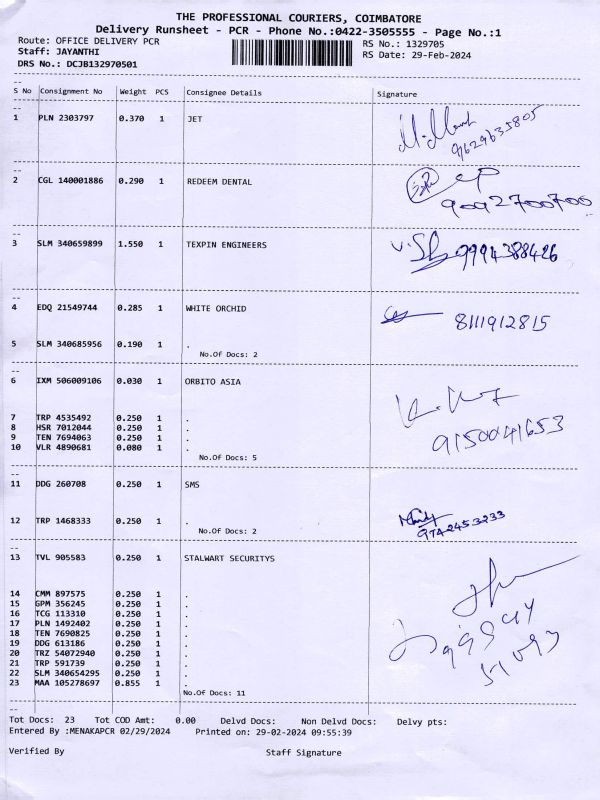 THE PROFESSIONAL COURIERS, COIMBATORE
Delivery Runsheet - PCR - Phone No.:0422-3505555 - Page No.:1
Route: OFFICE DELIVERY PCR
RS No.: 1329705
Staff: JAYANTHI
RS Date: 29-Feb-2024
DRS No.: DCJB132970501
S No Consignment No Weight PCS Consignee Details Signature
1 PLN 2303797 0.370 1 JET
9629635805
2 CGL 140001886 0.290 1 REDEEM DENTAL
9092700700
3 SLM 340659899 1.550 1 TEXPIN ENGINEERS
9994388426
4 EDQ 21549744 0.285 1 WHITE ORCHID
8111912815
5 SLM 340685956 0.190 1 .
No.Of Docs: 2
6 IXM 506009106 0.030 1 ORBITO ASIA
7 TRP 4535492 0.250 1 .
8 HSR 7012044 0.250 1 .
9 TEN 7694063 0.250 1 .
10 VLR 4890681 0.080 1 .
9150041653
No.Of Docs: 5
11 DDG 260708 0.250 1 SMS
12 TRP 1468333 0.250 1 .
9742453233
No.Of Docs: 2
13 TVL 905583 0.250 1 STALWART SECURITYS
14 CMM 897575 0.250 1 .
15 GPM 356245 0.250 1 .
16 TCG 113310 0.250 1 .
17 PLN 1492402 0.250 1 .
18 TEN 7690825 0.250 1 .
19 DDG 613186 0.250 1 .
20 TRZ 54072940 0.250 1 .
21 TRP 591739 0.250 1 .
22 SLM 340654295 0.250 1 .
23 MAA 105278697 0.855 1 .
No.Of Docs: 11
Tot Docs: 23 Tot COD Amt: 0.00 Delvd Docs: Non Delvd Docs: Delvy pts:
Entered By :MENAKAPCR 02/29/2024 Printed on: 29-02-2024 09:55:39
Verified By Staff Signature